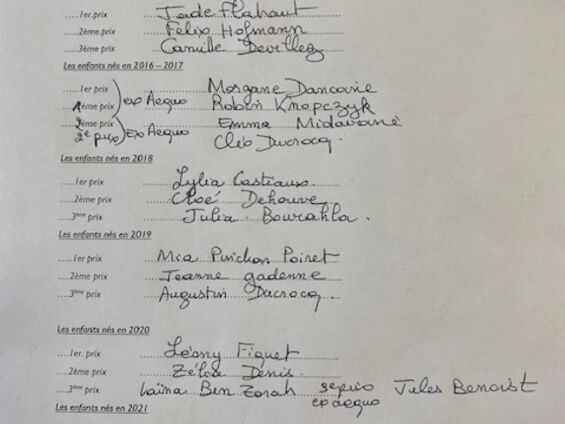 ....1er.prix ......Jade Flahaut
....2ème prix ......Felix Hofmann
....3ème prix ......Camille Devillez
Les enfants nés en 2016 – 2017
....1er prix ex Aequo Morgane Dancoine
1ème prix Robin Knopczyk
2ème prix Ex Aequo Emma Midavaine
2e prix Cléo Ducrocq.
Les enfants nés en 2018
.....1er prix ......Lylia Castiaux.
.....2ème prix ......Chloé Dehouve
.....3ème prix ......Julia Bourahla.
Les enfants nés en 2019
.....1er prix ......Mia Pinchon Poiret
.....2ème prix ......Jeanne gadenne
.....3ème prix ......Augustin Ducrocq
Les enfants nés en 2020
....1er. prix ......Léony Fiquet
....2ème prix ......Zélie Denis
....3ème prix Ben Zorah 3e prix Jules Benoist
ex aequo
Les enfants nés en 2021